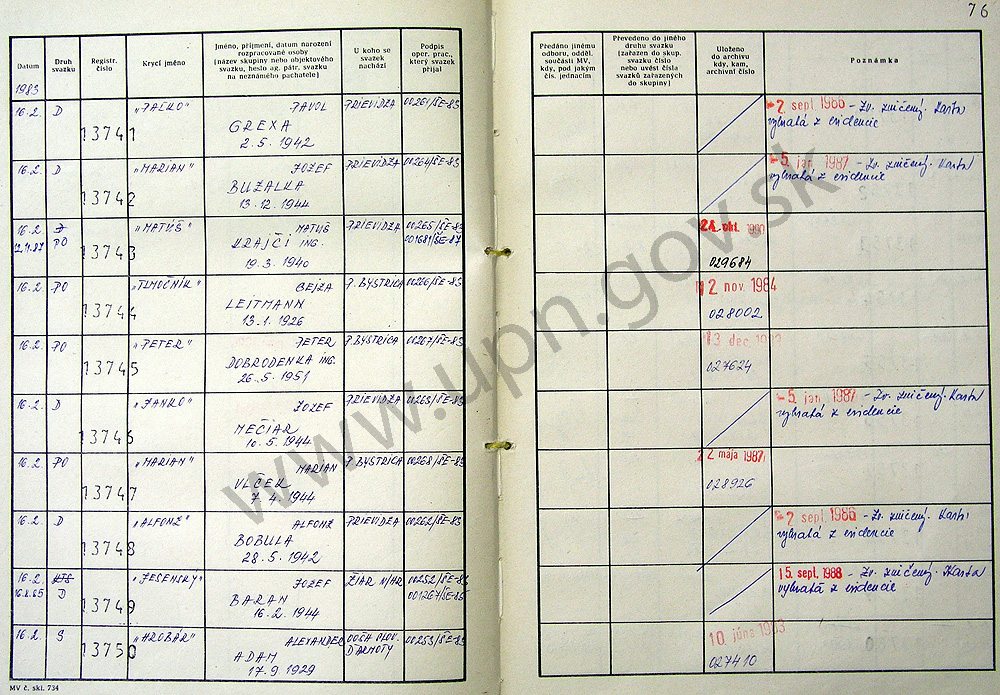 76
Datum
Druh svazku
Registr. číslo
Krycí jméno
Jméno, příjmení, datum narození
rozpracované osoby
(název skupiny nebo objektového
svazku, heslo ag. pátr. svazku
na neznámého pachatele)
U koho se
svazek
nachází
Podpis
oper. prac.,
který svazek
přijal
Předáno jinému
odboru, odděl.
součásti MV,
kdy, pod jakým
čís. jednacím
Převedeno do jiného
druhu svazku
(zařazen do skup.
svazku číslo
nebo uvést čísla
svazků zařazených
do skupiny)
Uloženo
do archivu
kdy, kam,
archivní číslo
Poznámka
1983
16.2. D 13741 "PALKO" PAVOL PRIEVIDZA 00261/ŠE-83
GREXA
2.5.1942
2 sept 1986 - Zv. zničený. Karta
vybratá z evidencie
16.2. D 13742 "MARIAN" JOZEF PRIEVIDZA 00264/ŠE-83
BUZALKA
13.12.1944
5. jan. 1987 - Zv. zničený. Karta
vybratá z evidencie
16.2. 13743 "MATÚŠ" MATÚŠ PRIEVIDZA 00265/ŠE-83
PO 001681/ŠE-87
KRAJČÍ ING.
19.3.1940
24. okt. 1990
029684
16.2. PO 13744 "TLMOČNÍK" GEJZA P. BYSTRICA 00266/ŠE-83
LEITMANN
13.1.1926
12 nov. 1984
028002
16.2. PO 13745 "PETER" PETER P. BYSTRICA 00267/ŠE-83
DOBRODENKA ING.
26.5.1951
13 dec.
027624
16.2. D 13746 "JANKO" JOZEF PRIEVIDZA 00263/ŠE-83
MEČIAR
10.5.1944
5. jan. 1987 - Zv. zničený. Karta
vybratá z evidencie
16.2. PO 13747 "MARIAN" MARIAN P. BYSTRICA 00268/ŠE-83
VLČEK
7.4.1944
2 mája 1987
028926
16.2. D 13748 "ALFONZ" ALFONZ PRIEVIDZA 00262/ŠE-83
BOBULA
28.5.1942
2 sept. 1986 - Zv. zničený. Karta
vybratá z evidencie
16.2. KTS 13749 "JESENSKÝ" JOZEF ŽIAR N/HR 00252/ŠE-83
D 001267/ŠE-85
BARAN
16.2.1944
15. sept. 1988 - Zv. zničený. Karta
vybratá z evidencie
16.2. S 13750 "HROBÁR" ALEXANDER 00253/ŠE-83
ĎARMOTY
ADAM
17.9.1929
10 júna 1983
027410
MV č. skl. 734
www.upn.gov.sk